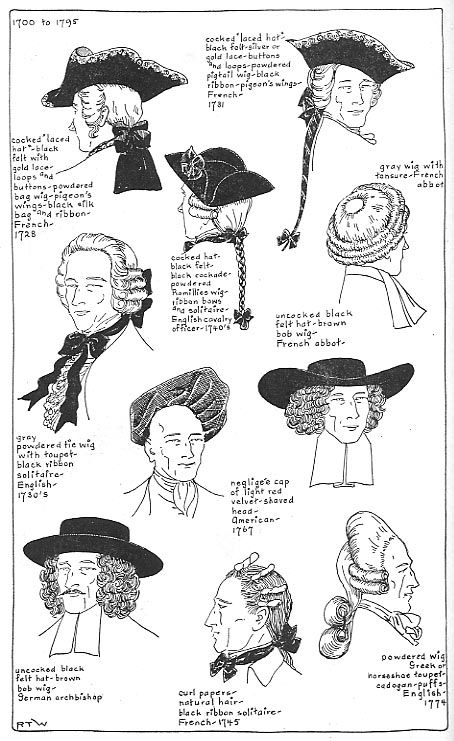 1700 to 1795
cocked "laced
hat"-black
felt with
gold lace-
loops and
buttons-powdered
bag wig-pigeon's
wings-black silk
bag and ribbon-
French-
1728
cocked "laced hat"-
black felt-silver or
gold lace-buttons
and loops-powdered
pigtail wig-black
ribbon-pigeon's wings-
French-
1731
cocked hat-
black felt-
black cockade-
powdered
Ramillies wig-
ribbon bows
and solitaire-
English cavalry
officer-1740's
gray wig with
tonsure-French
abbot
gray
powdered tie wig
with toupet-
black ribbon
solitaire-
English-
1730's
uncocked black
felt hat-brown
bob wig-
French abbot-
negligée cap
of light red
velvet-shaved
head-
American-
1767
uncocked black
felt hat-brown
bob wig-
German archbishop
curl papers-
natural hair-
black ribbon solitaire-
French-1745
powdered wig
Greek or
horseshoe toupet-
cadogan-puffs-
English-
1774
RTW